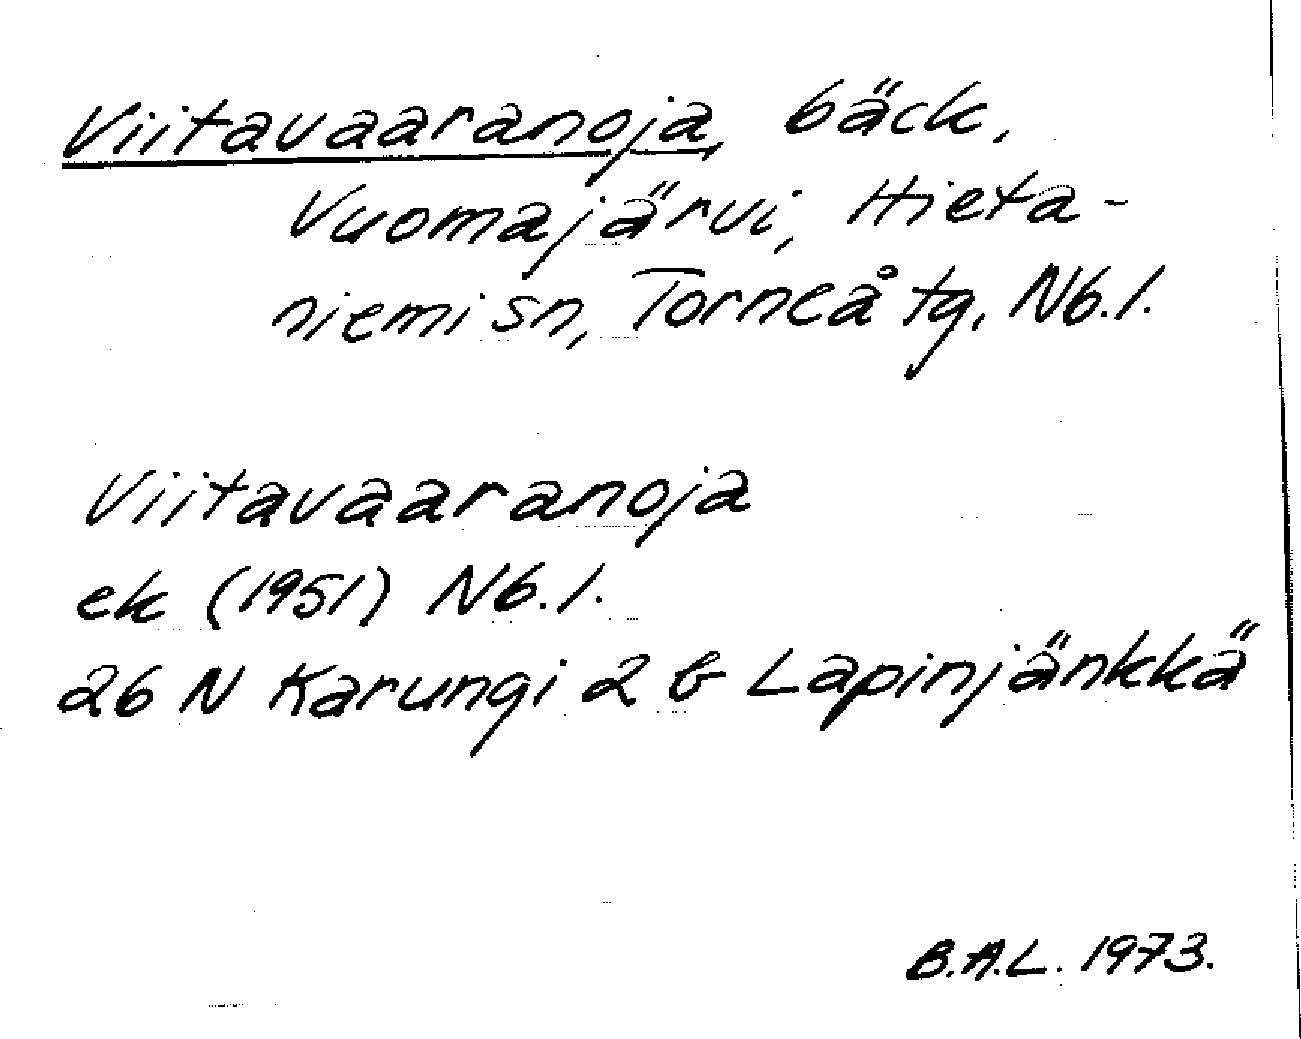 Viitavaaranoja, bäck,
Vuomajärvi, Hieta-
niemi sn, Torneå tg, Nb.l.
Viitavaaranoja
ek (1951) Nb.l.
26 N Karungi 2 b Lapinjänkkä
B.A.L. 1973.